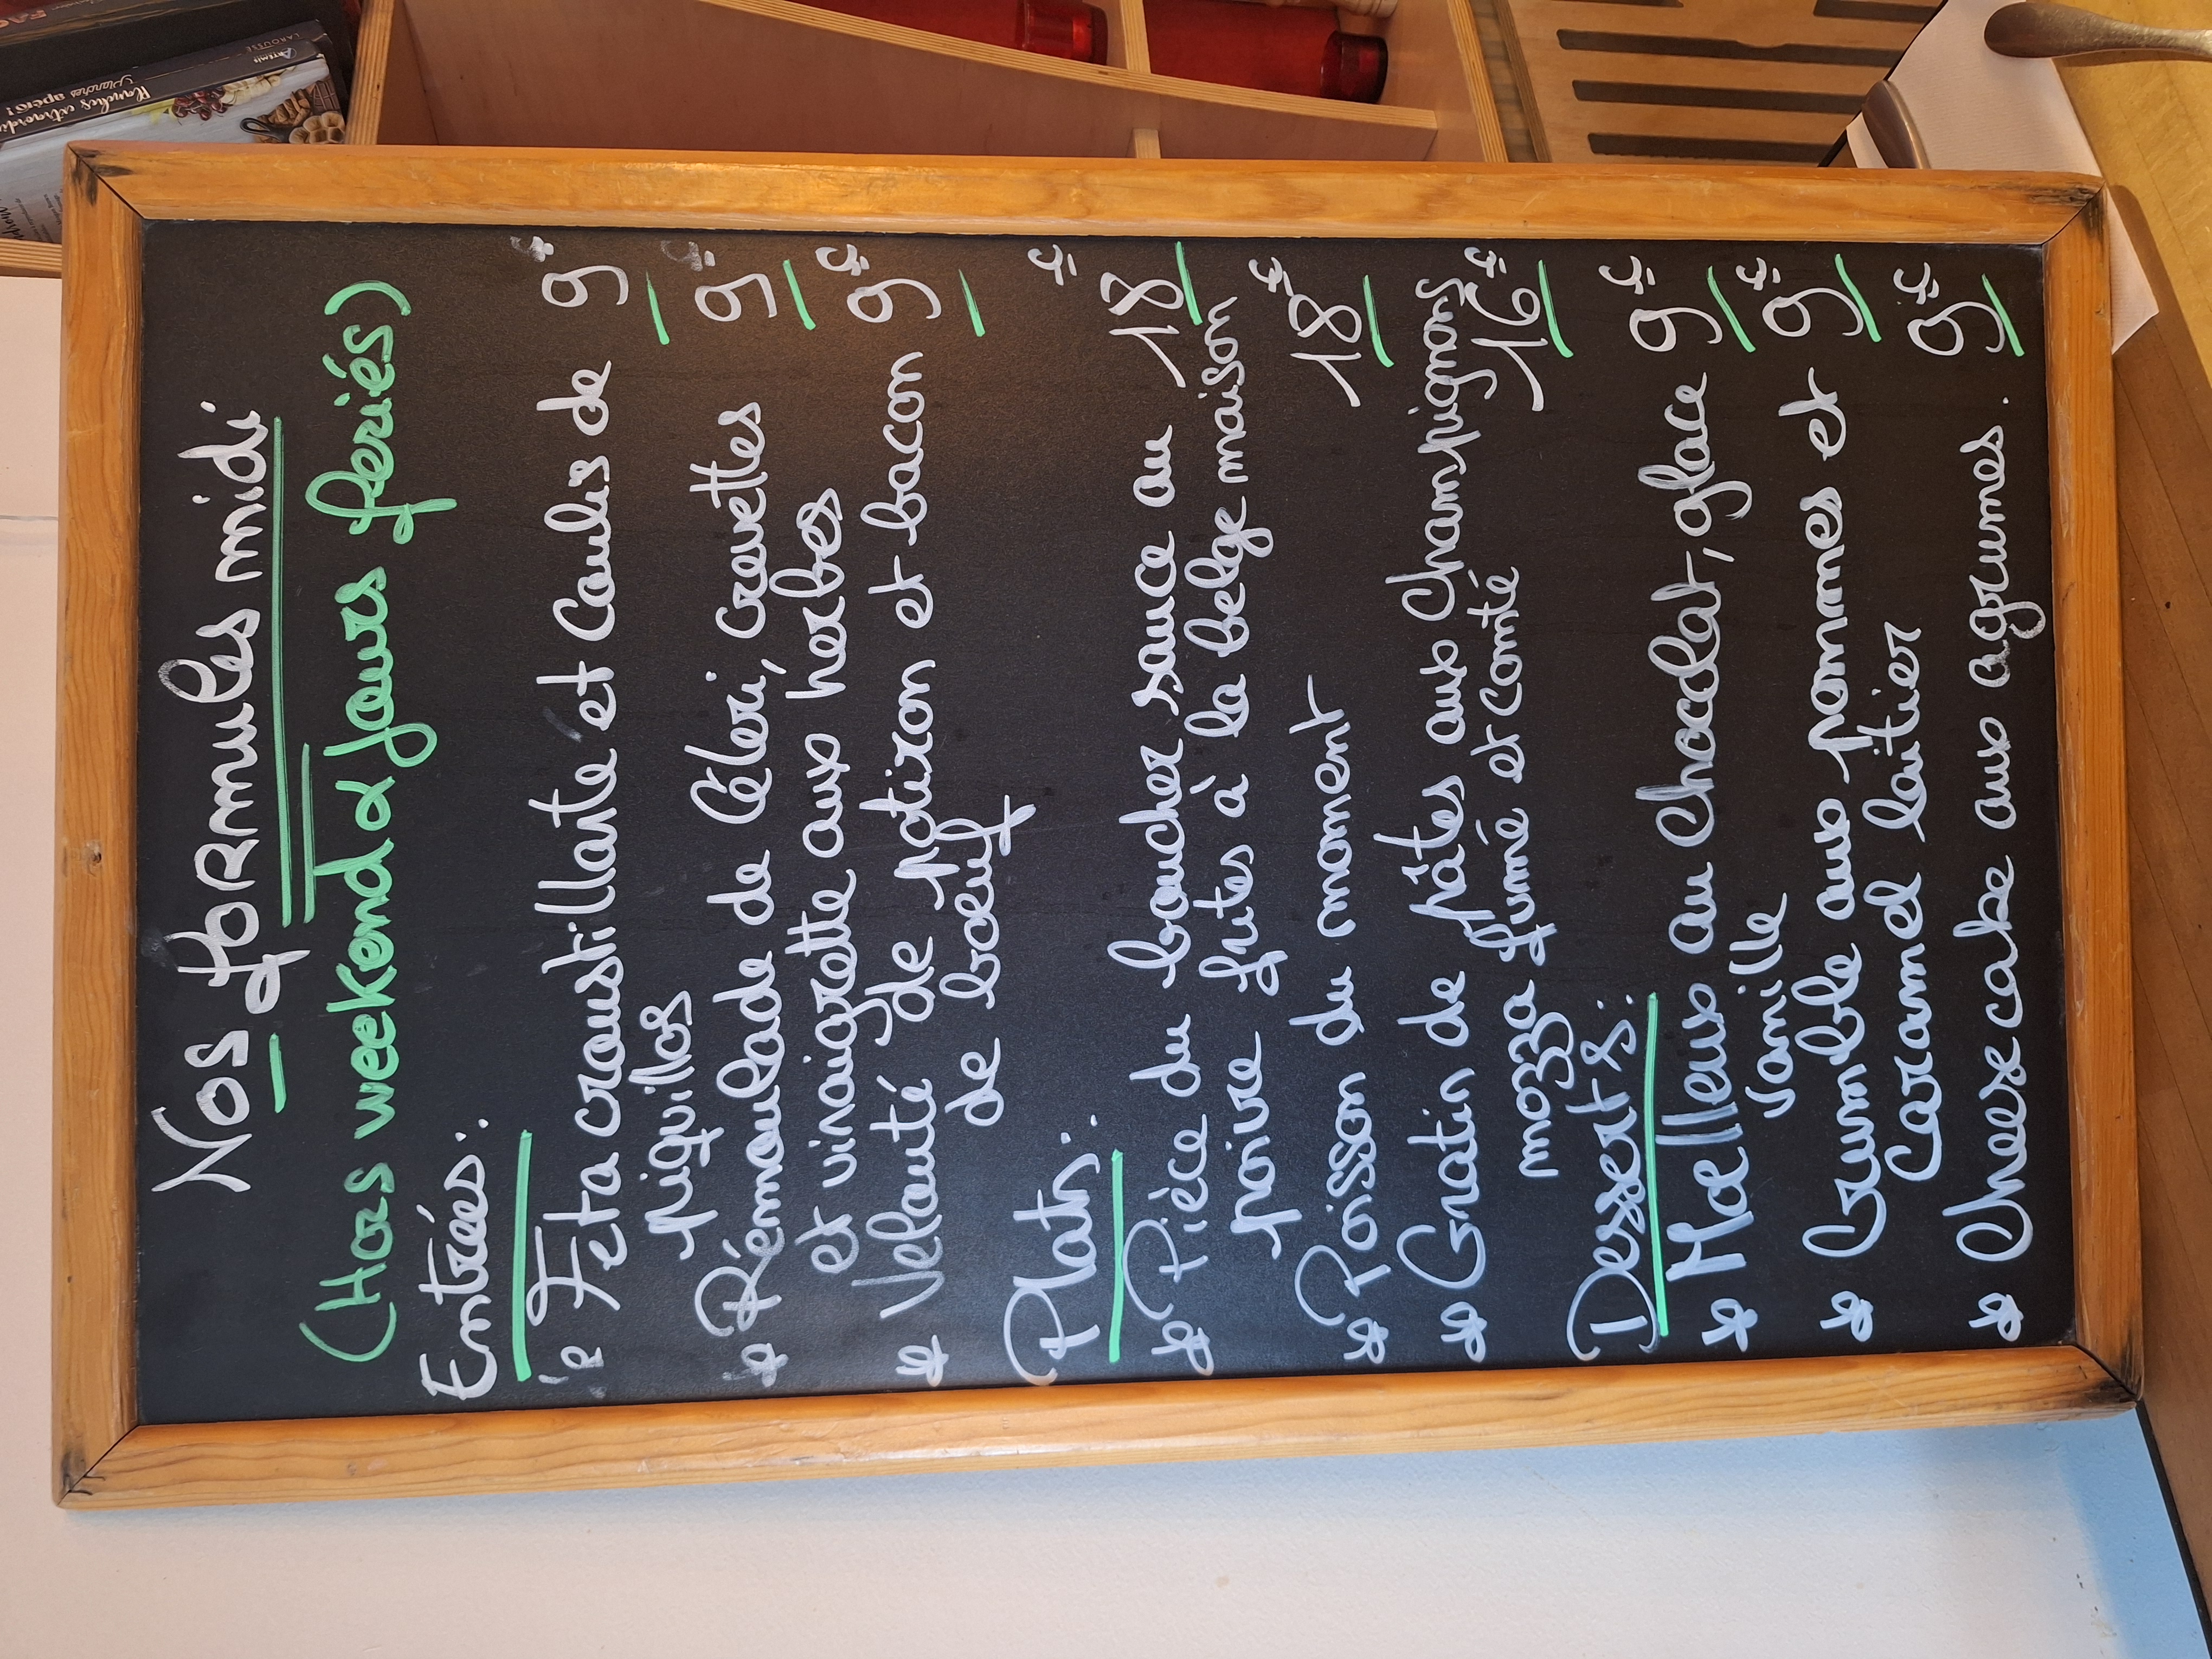 Nos formules midi
(Hors weekend & jours feriés)
Entrées:
* Feta croustillante et Coulis de 9€
Piquillos
* Rémoulade de Céleri, crevettes 9€
et vinaigrette aux herbes
* Velouté de Potiron et bacon 9€
de boeuf
Plats:
* Pièce du boucher sauce au 18€
poivre frites à la belge maison
* Poisson du moment 18€
* Gratin de Pâtes aux Champignons
mozza fumé et comté 16€
Desserts:
* Moelleux au Chocolat, glace 9€
Vanille
* Crumble aux pommes et 9€
Caramel laitier
* Cheesecake aux agrumes. 9€
LAROUSSE
ARTEMIS
Planches apéro!